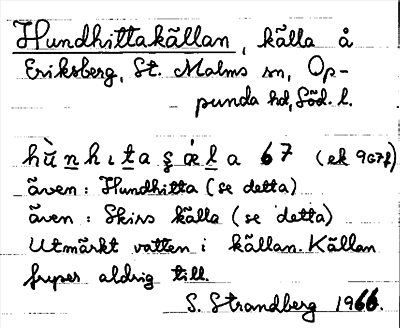 Hundhittakällan, källa å
Eriksberg, St. Malms sn, Op-
punda hd, Söd. l.
hùnhıtaşǽla 67 (ek 9G7f)
även: Hundhitta (se detta)
även: Skirs källa (se detta)
Utmärkt vatten i källan. Källan
fryser aldrig till.
S. Strandberg 1966.